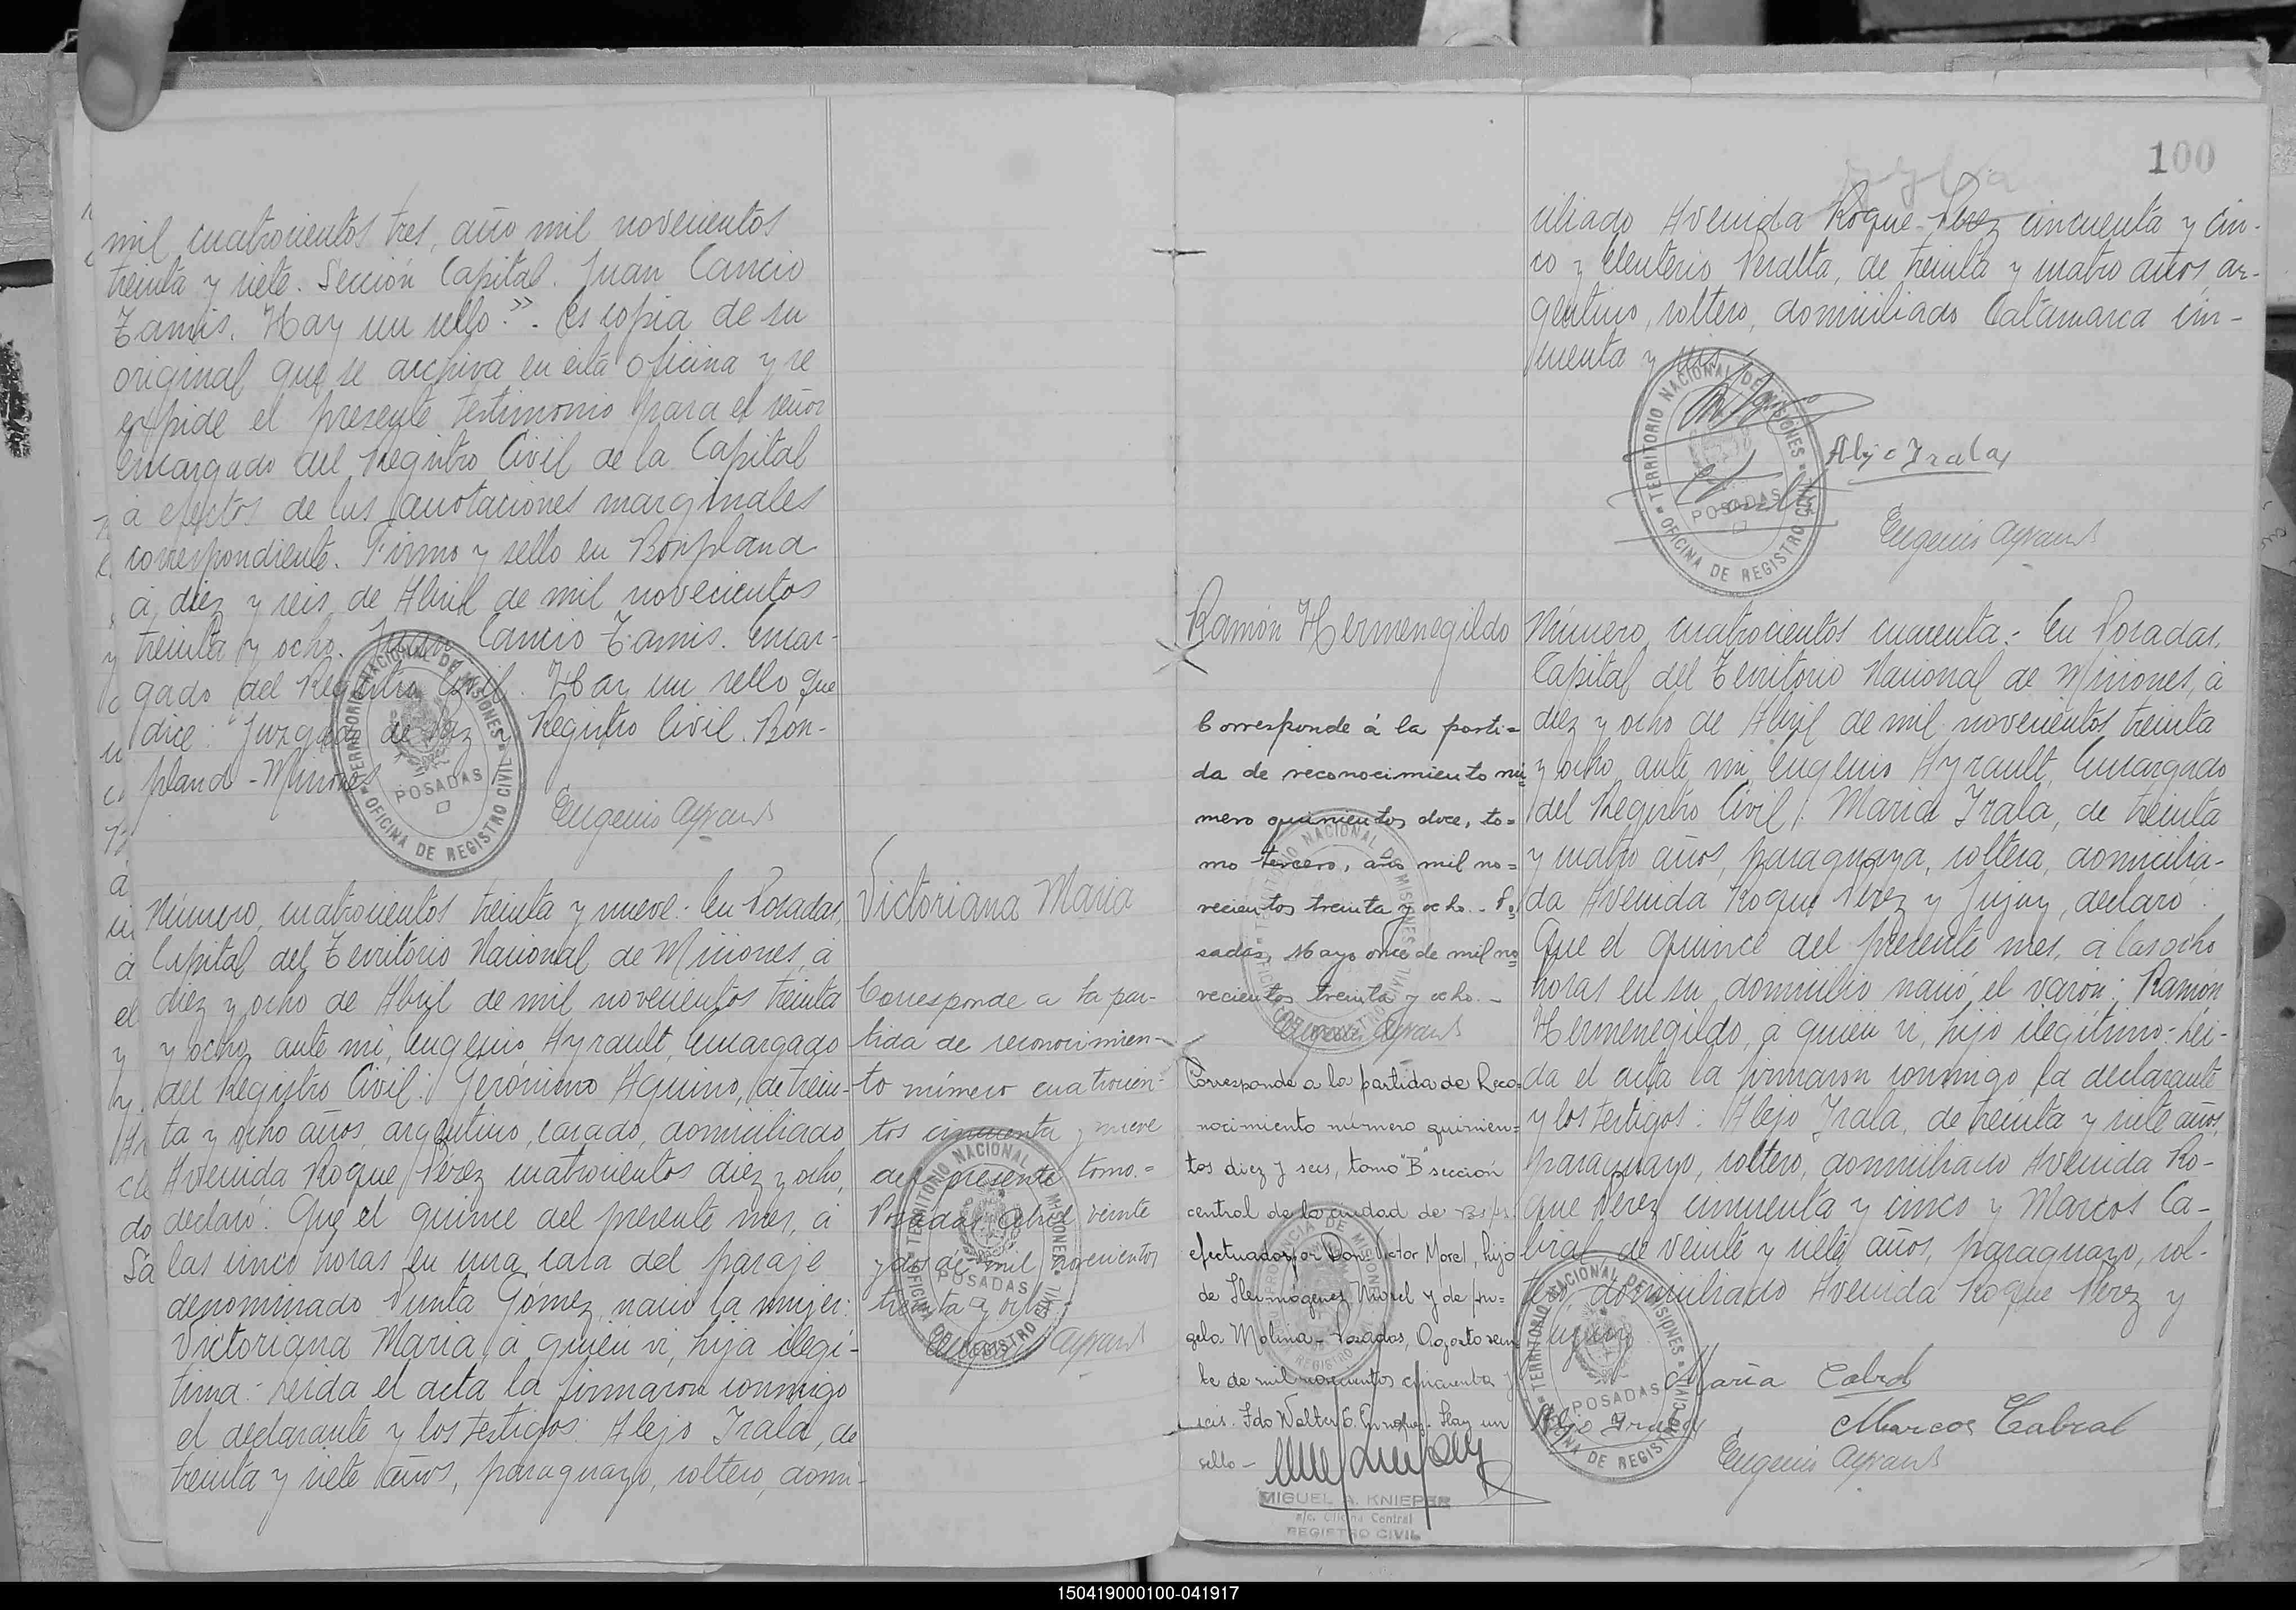 mil cuatrocientos tres, año mil novecientos
treinta y siete. Sección Capital. Juan Cancio
Zamis. Hay un sello.". Es copia de su
original que se archiva en esta oficina y se
expide el presente testimonio para el señor
Encargado del Registro Civil de la Capital
á efectos de las anotaciones marginales
correspondiente. Firmo y sello en Bonpland
á diez y seis de Abril de mil novecientos
treinta y ocho. Juan Cancio Zamis. Encar-
gado del Registro Civil. Hay un sello que
dice: "Juzgado de Paz y Registro Civil. Bon-
pland - Misiones
TERRITORIO NACIONAL DE MISIONES
POSADAS
OFICINA DE REGISTRO CIVIL
Eugenio Ayrault
Número cuatrocientos treinta y nueve: En Posadas,
Capital del Territorio Nacional de Misiones, á
diez y ocho de Abril de mil novecientos treinta
y ocho, ante mi, Eugenio Ayrault, Encargado
del Registro Civil: Gerónimo Aquino, de trein-
ta y ocho años, argentino, casado, domiciliado
Avenida Roque Pérez cuatrocientos diez y ocho,
declaró: Que el quince del presente mes, á
las cinco horas en una casa del paraje
denominado Punta Gómez nació la mujer:
Victoriana Maria, á quien vi, hija ilegí-
tima: Leida el acta la firmaron conmigo
el declarante y los testigos: Alejo Irala, de
treinta y siete años, paraguayo, soltero, domi-
Victoriana Maria
Corresponde a la par-
tida de reconocimien-
to número cuatrocien-
tos cincuenta y nueve
del presente tomo.=
Posadas, Abril veinte
y dos de mil novecientos
treinta y ocho.
Eugenio Ayrault
TERRITORIO NACIONAL DE MISIONES
POSADAS
OFICINA DE REGISTRO CIVIL
100
ciliado Avenida Roque Pérez cincuenta y cin-
co y Eleuterio Peralta, de treinta y cuatro años, ar-
gentino, soltero, domiciliado Catamarca cin-
cuenta y seis
TERRITORIO NACIONAL DE MISIONES
POSADAS
OFICINA DE REGISTRO CIVIL
Alejo Irala
Eugenio Ayrault
Ramón Hermenegildo
Corresponde á la parti=
da de reconocimiento nú=
mero quinientos doce, to=
mo tercero, año mil no=
vecientos treinta y ocho. - Po=
sadas, Mayo once de mil no=
vecientos treinta y ocho. -
Eugenio Ayrault
Corresponde a la partida de Reco-
nocimiento número quinien=
tos diez y seis, tomo "B" sección
central de la ciudad de
efectuado por Don Victor Morel, hijo
de Hermógenes Morel y de
Molina - Posadas, Agosto vein
te de mil novecientos cincuenta y
seis. Fdo Walter Hay un
sello -
MIGUEL A. KNIEPER
a/c. Oficina Central
REGISTRO CIVIL
Número cuatrocientos cuarenta: En Posadas,
Capital del Territorio Nacional de Misiones, á
diez y ocho de Abril de mil novecientos treinta
y ocho, ante mi, Eugenio Ayrault, Encargado
del Registro Civil: Maria Irala, de treinta
y cuatro años, paraguaya, soltera, domicilia-
da Avenida Roque Pérez y Jujuy, declaró:
Que el quince del presente mes, á las ocho
horas en su domicilio nació el varón: Ramón
Hermenegildo, á quien vi, hijo ilegítimo: Lei-
da el acta la firmaron conmigo la declarante
y los testigos: Alejo Irala, de treinta y siete años,
paraguayo, soltero, domiciliado Avenida Ro-
que Pérez cincuenta y cinco y Marcos Ca-
bral, de veinte y siete años, paraguayo, sol-
tero, domiciliado Avenida Roque Pérez y
Jujuy
TERRITORIO NACIONAL DE MISIONES
POSADAS
OFICINA DE REGISTRO CIVIL
Maria Cabral
Alejo Irala
Marcos Cabral
Eugenio Ayrault
150419000100-041917